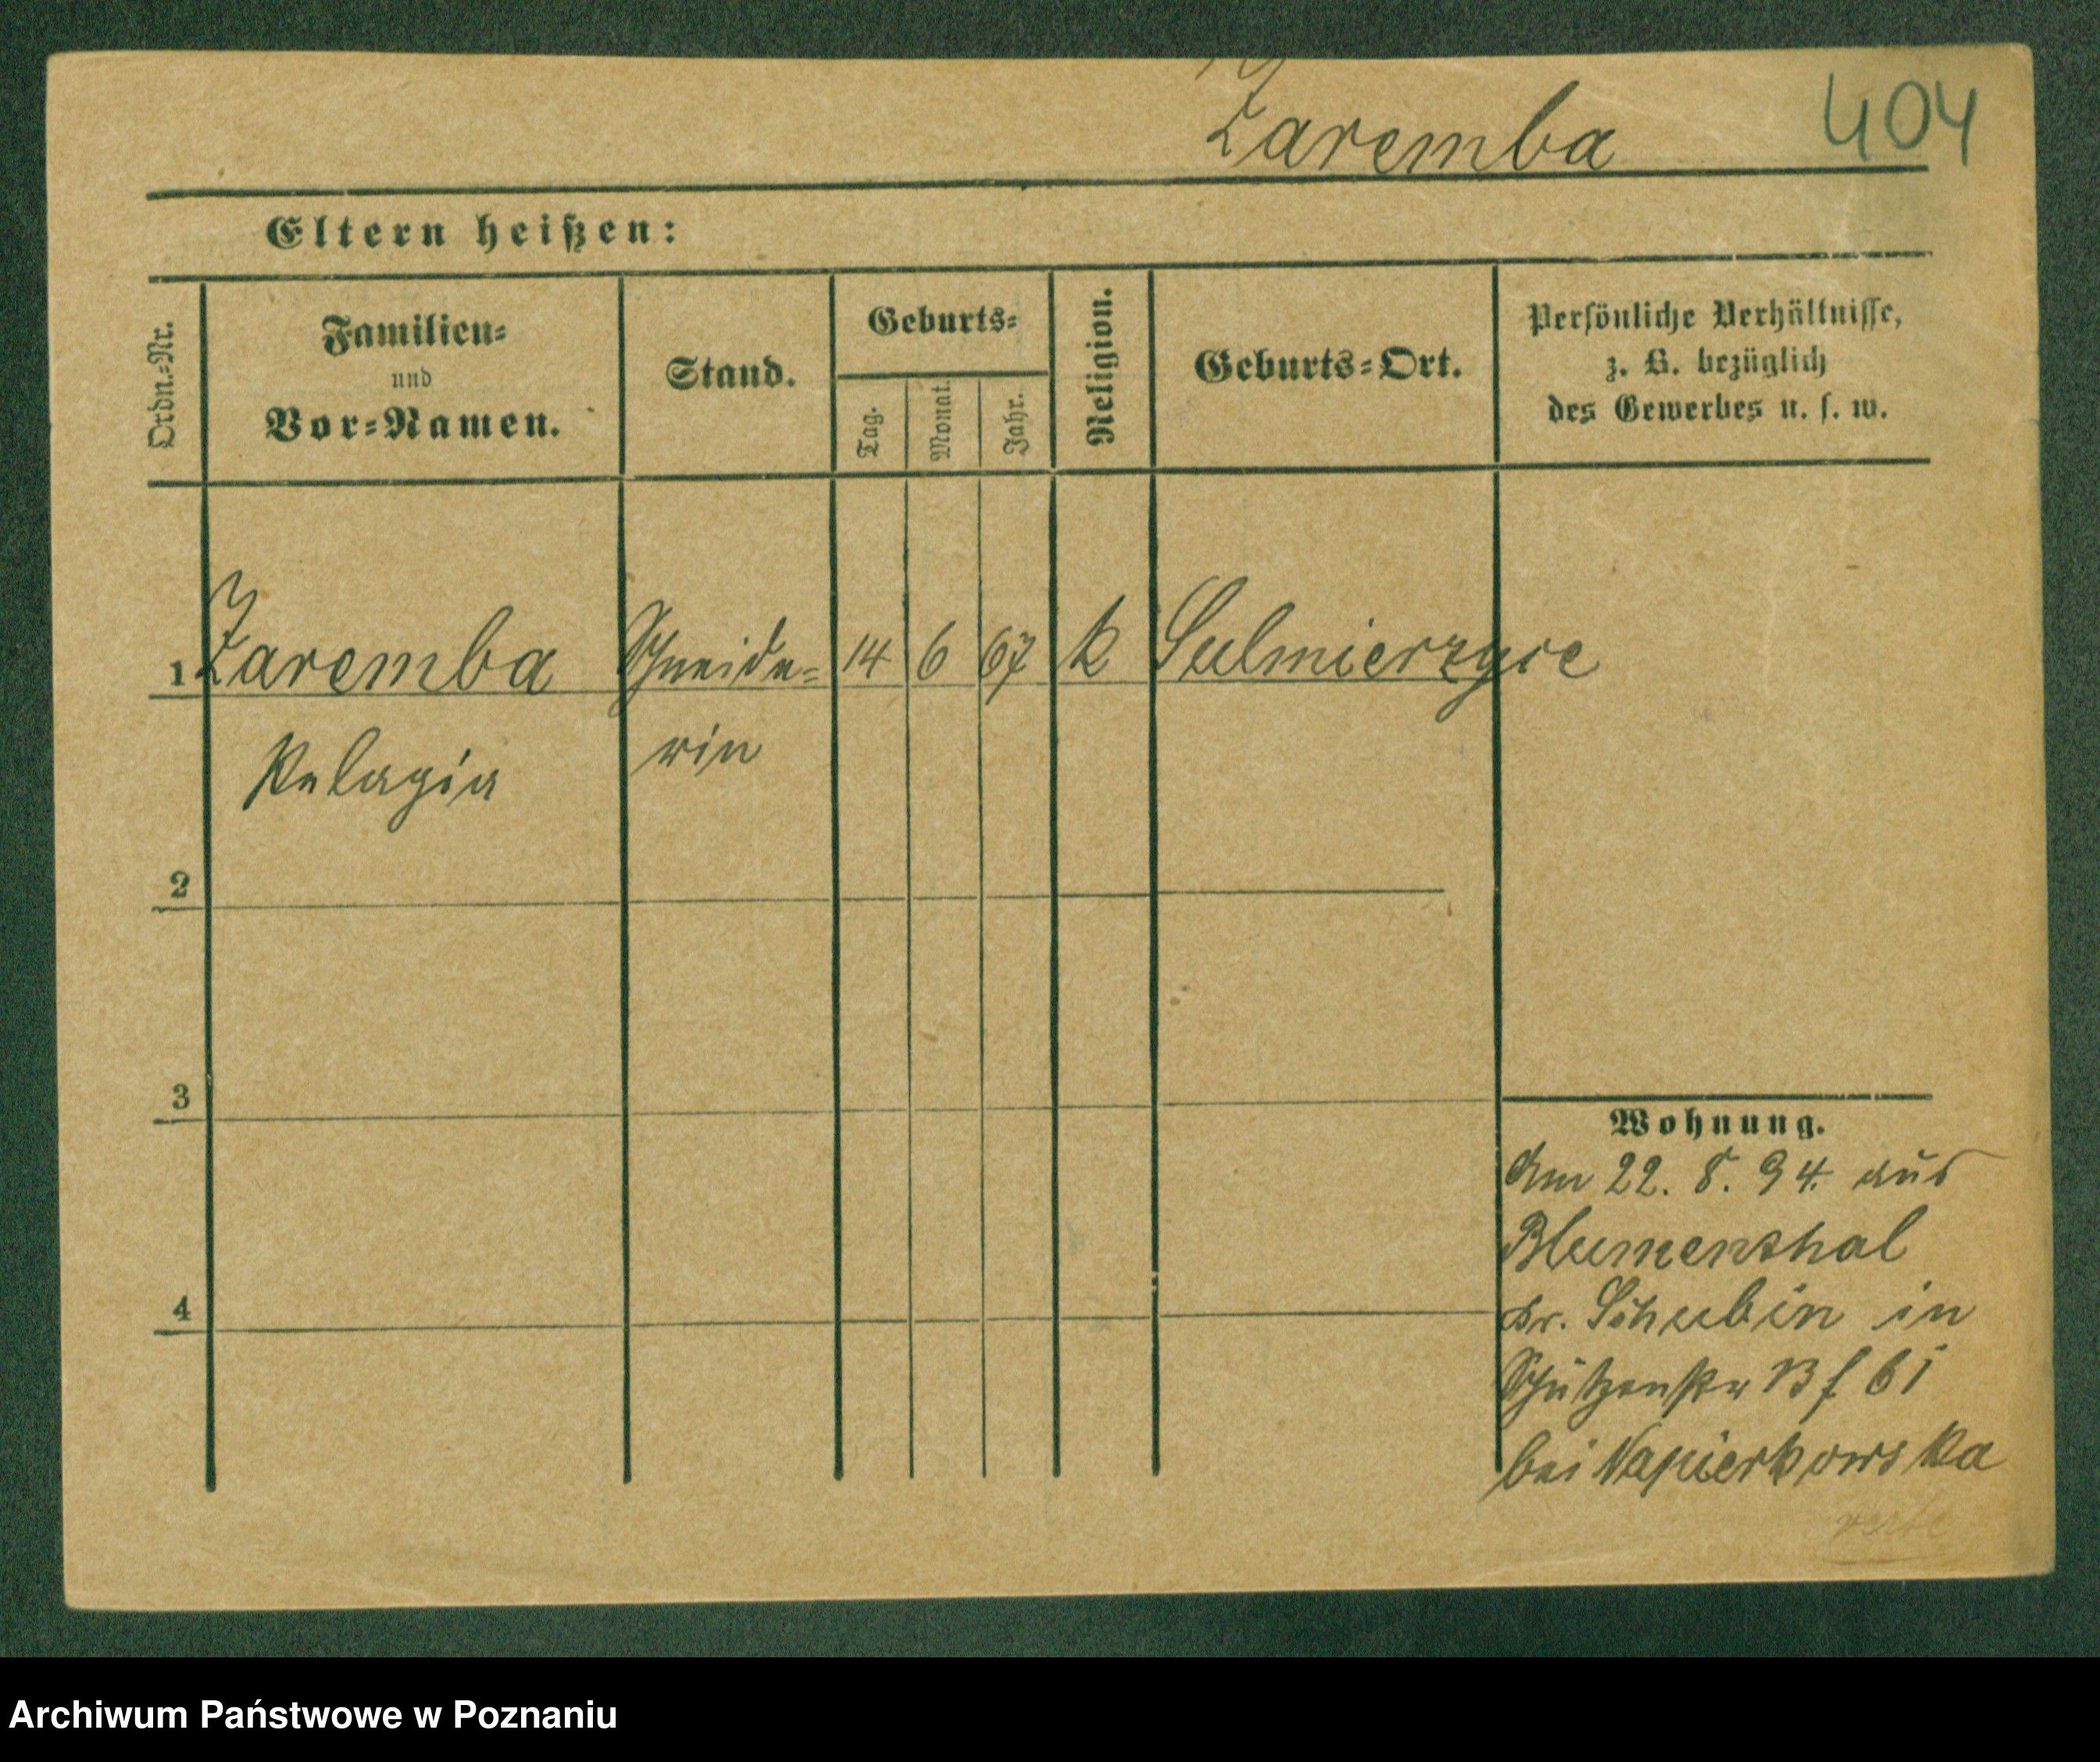 Zaremba
404
Eltern heißen:
Ordn.-Nr.
Familien-
und
Vor-Namen.
Stand.
Geburts-
Tag.
Monat.
Jahr.
Religion.
Geburts-Ort.
Persönliche Verhältnisse,
z. B. bezüglich
des Gewerbes u. s. w.
1 Zaremba Schneide- 14 6 67 k Sulmierzyce
Pelagia rin
2
3
4
Wohnung.
Am 22. 8. 94. aus
Blumenthal
Kr. Schubin in
Schützenstr 13 f 6 i
bei Napierkowska
verte
Archiwum Państwowe w Poznaniu